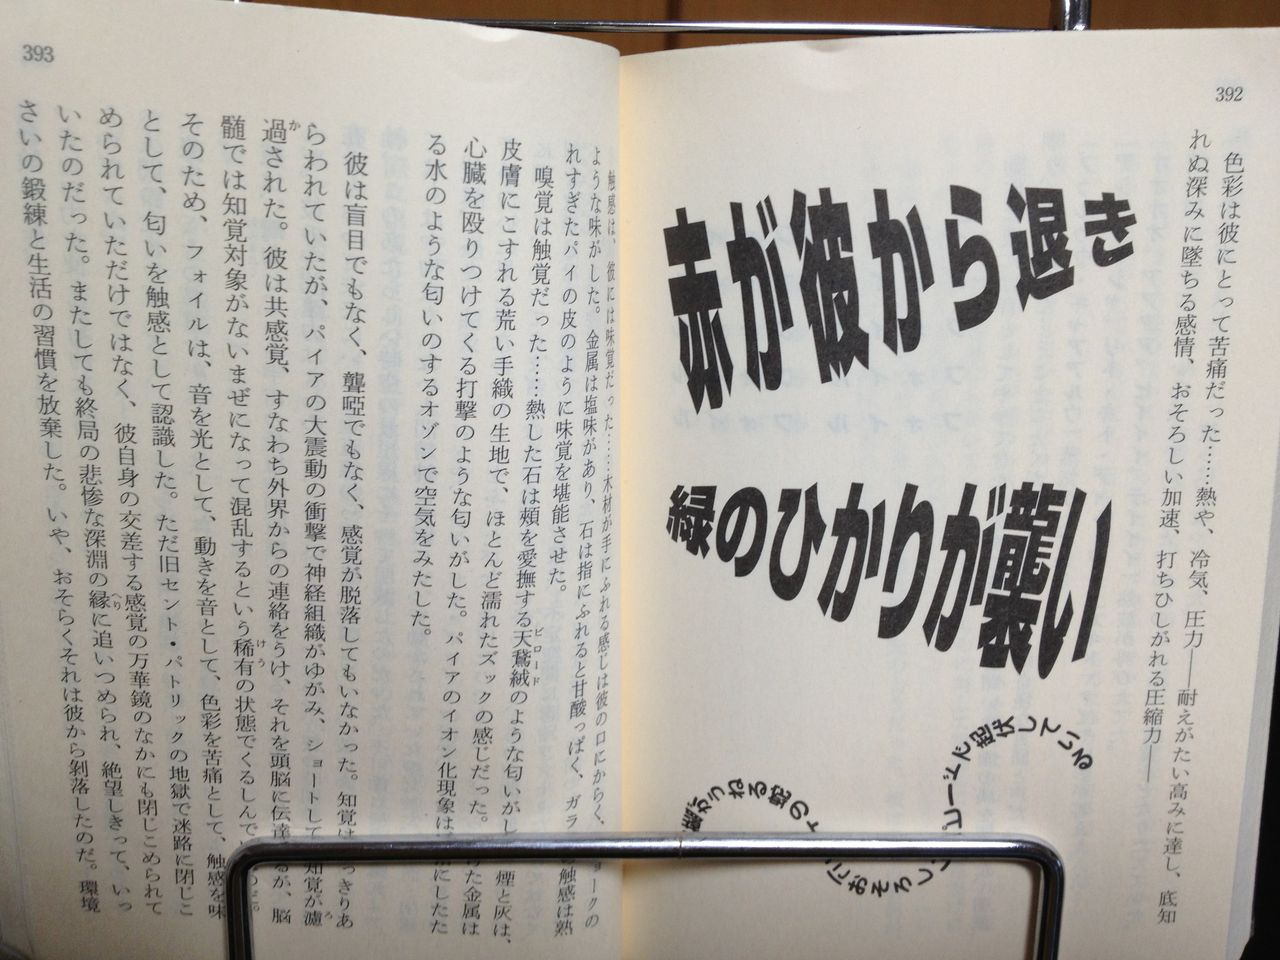 392
色彩は彼にとって苦痛だった……熱や、冷気、圧力――耐えがたい高みに達し、底知
れぬ深みに墜ちる感情、おそろしい加速、打ちひしがれる圧縮力――
赤が彼から退き
緑のひかりが襲い
うねる蛇の
おそろし
で起伏している
393
触感は、彼には味覚だった……木材が手にふれる感じは彼の口にからく、
ような味がした。金属は塩味があり、石は指にふれると甘酸っぱく、ガラ
触感は熟
れすぎたパイの皮のように味覚を堪能させた。
嗅覚は触覚だった……熱した石は頰を愛撫する天鵞絨のような匂いがし
煙と灰は、
ビロード
皮膚にこすれる荒い手織の生地で、ほとんど濡れたズックの感じだった。
た金属は
心臓を殴りつけてくる打撃のような匂いがした。パイアのイオン化現象は
にしたた
る水のような匂いのするオゾンで空気をみたした。
彼は盲目でもなく、聾啞でもなく、感覚が脱落してもいなかった。知覚は
っきりあ
らわれていたが、パイアの大震動の衝撃で神経組織がゆがみ、ショートして
知覚が濾
ろ
過された。彼は共感覚、すなわち外界からの連絡をうけ、それを頭脳に伝達
るが、脳
か
髄では知覚対象がないまぜになって混乱するという稀有の状態でくるしんで
けう
そのため、フォイルは、音を光として、動きを音として、色彩を苦痛として、触感を味
として、匂いを触感として認識した。ただ旧セント・パトリックの地獄で迷路に閉じこ
められていただけではなく、彼自身の交差する感覚の万華鏡のなかにも閉じこめられて
いたのだった。またしても終局の悲惨な深淵の縁に追いつめられ、絶望しきって、いっ
へり
さいの鍛練と生活の習慣を放棄した。いや、おそらくそれは彼から剝落したのだ。環境